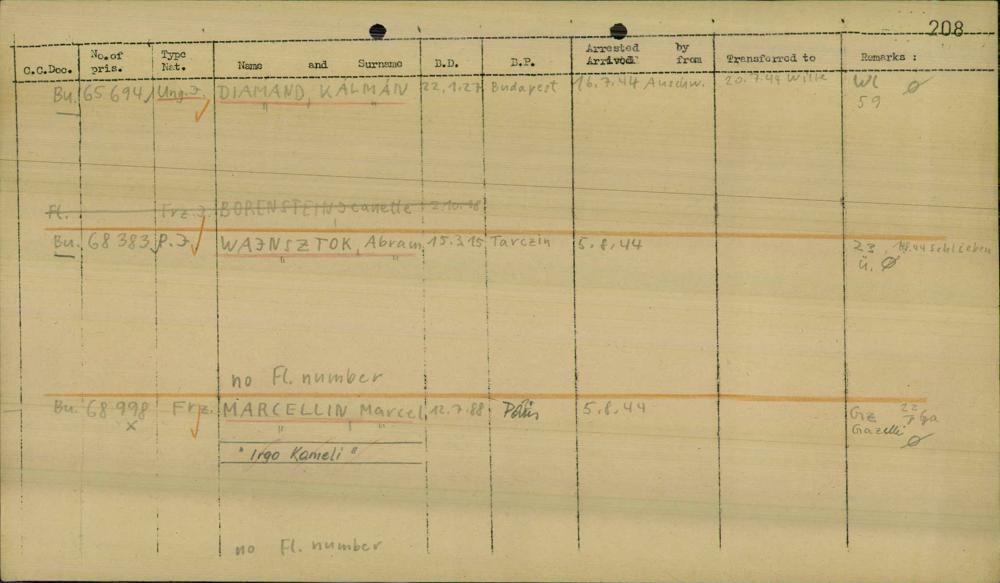 208
C.C.Doc. No. of pris. Type Nat. Name and Surname B.D. B.P. Arrested by Arrived from Transferred to Remarks :
Bu. 65694 Ung. J. DIAMAND, KALMÁN 22.1.27 Budapest 16.7.44 Auschw. 20.7.44 Wille
59
Fl. Frz. J. BORENSTEIN Jeanette 2.10.48
Bu. 68383 P. J. WAJNSZTOK, Abram 15.3.15 Tarczin 5.8.44 23. Schlieben
ü. Ø
no Fl. number
Bu. 68998 Frz. MARCELLIN Marcel 12.7.88 Paris 5.8.44 Gz
x
" Irgo Kameli "
no Fl. number